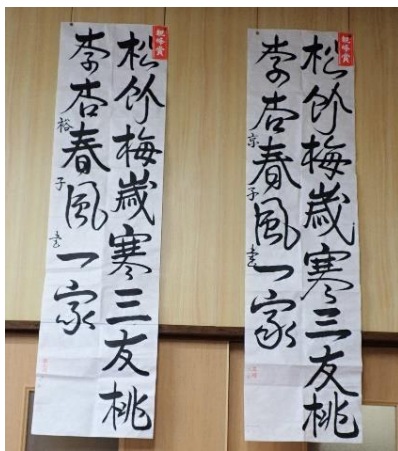 観峰賞
松竹梅歳寒三友桃
李杏春風一家
京子書
観峰賞
松竹梅歳寒三友桃
李杏春風一家
裕子書